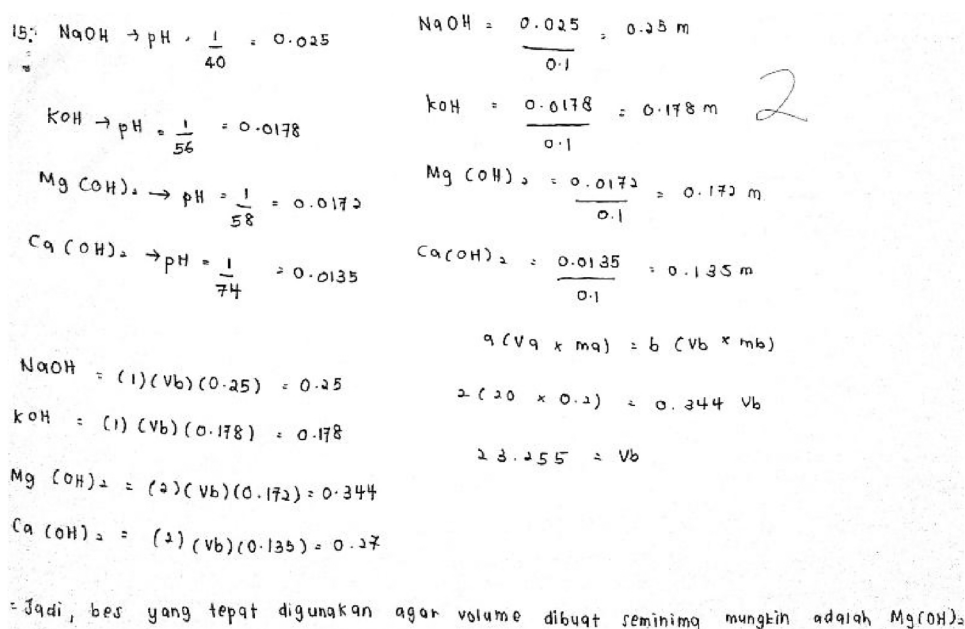 15. NaOH → pH = 1/40 = 0.025
KOH → pH = 1/56 = 0.0178
Mg(OH)₂ → pH = 1/58 = 0.0172
Ca(OH)₂ → pH = 1/74 = 0.0135
NaOH = (1)(Vb)(0.25) = 0.25
KOH = (1)(Vb)(0.178) = 0.178
Mg(OH)₂ = (2)(Vb)(0.172) = 0.344
Ca(OH)₂ = (2)(Vb)(0.135) = 0.27
NaOH = 0.025/0.1 = 0.25 m
KOH = 0.0178/0.1 = 0.178 m
2
Mg(OH)₂ = 0.0172/0.1 = 0.172 m
Ca(OH)₂ = 0.0135/0.1 = 0.135 m
a(Va × ma) = b(Vb × mb)
2(20 × 0.2) = 0.344 Vb
23.255 = Vb
= Jadi, bes yang tepat digunakan agar volume dibuat seminima mungkin adalah Mg(OH)₂